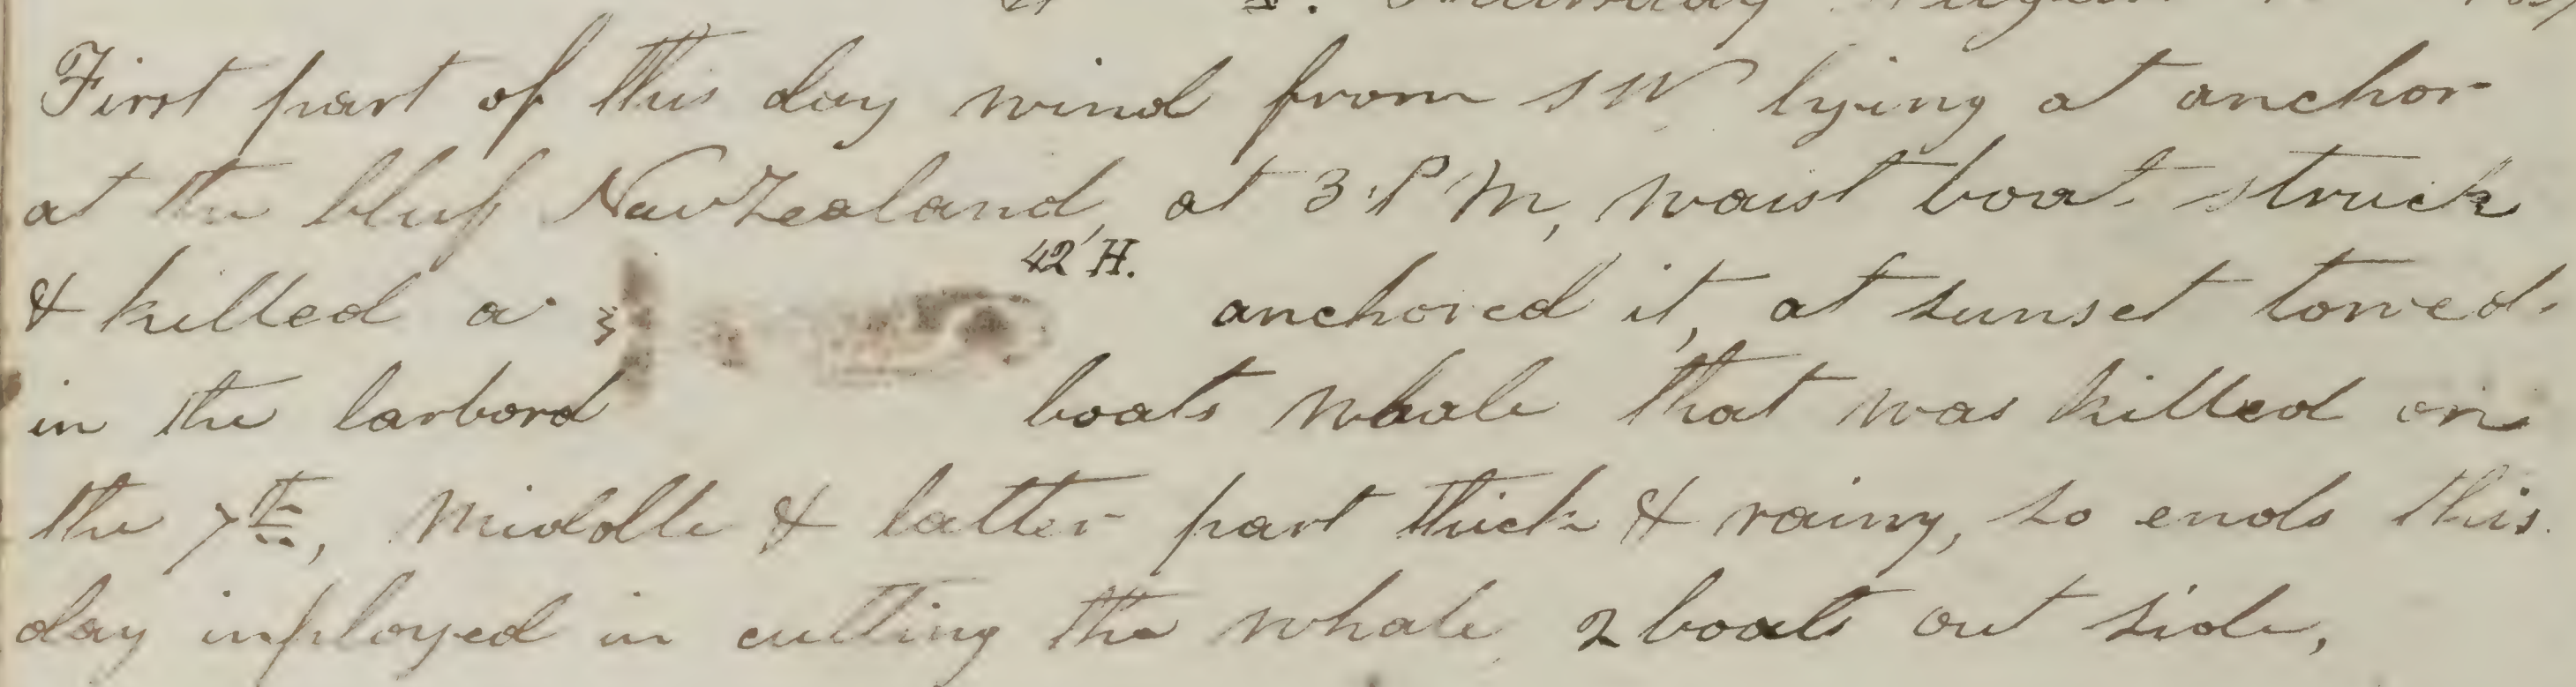 First part of this day wind from S W lying at anchor
at the bluff New Zealand, at 3 P M, waist boat struck
& killed a 42' H. anchored it, at sunset towed
in the larbord boats whale that was killed on
the 7th, Middle & latter part thick & rainy, so ends this
day inployed in cutting the whale 2 boats out side,